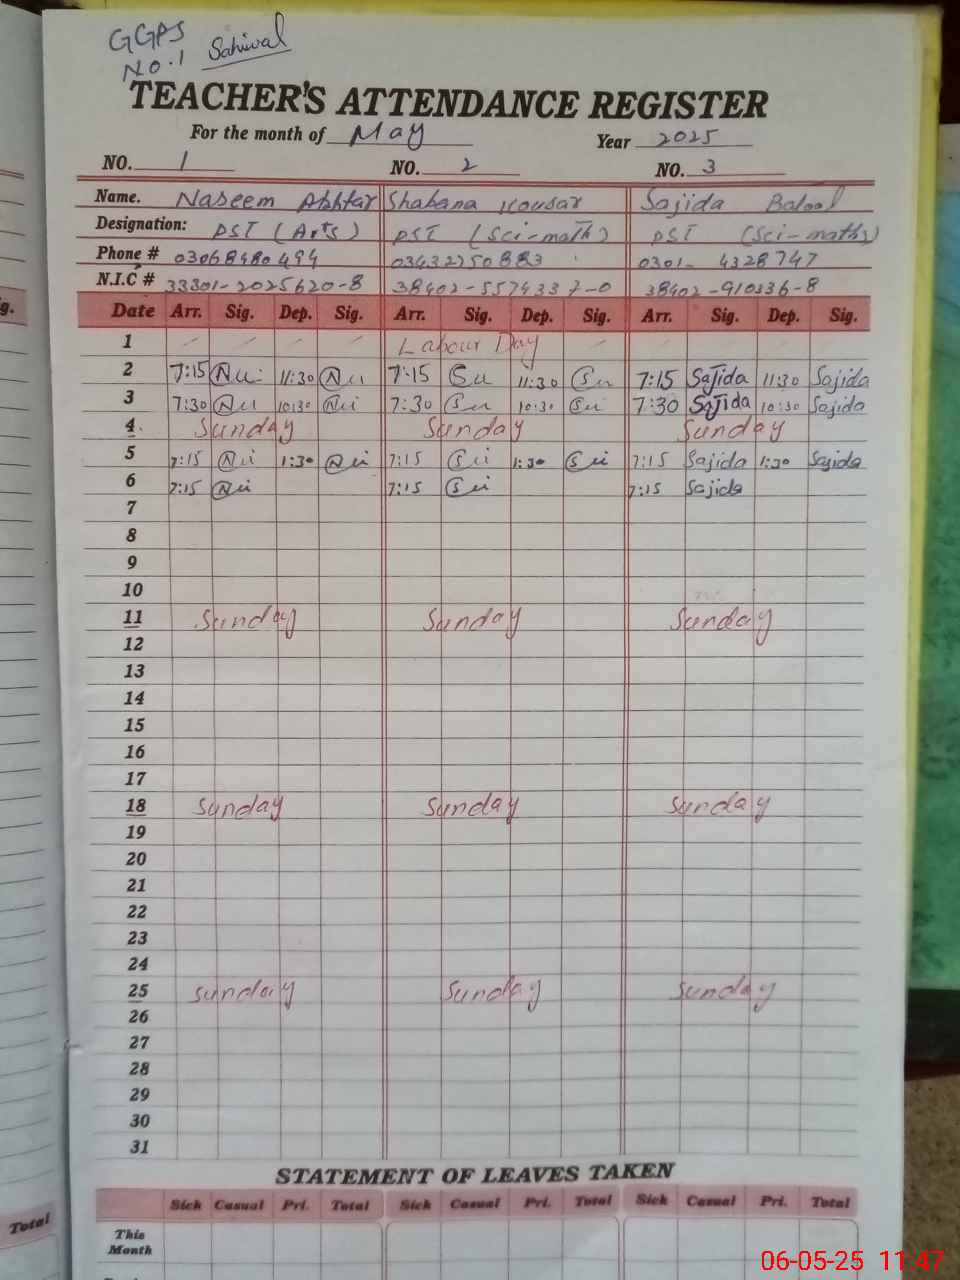 GGPS
No.1 Sahiwal
TEACHER'S ATTENDANCE REGISTER
For the month of May Year 2025
NO. 1 NO. 2 NO. 3
Name. Naseem Akhtar Shabana Kousar Sajida Batool
Designation: PST (Arts) PST (Sci-math) PST (Sci-maths)
Phone # 03068480494 03432750883 0301- 4328747
N.I.C # 33301-2025620-8 38402-5574337-0 38402-910336-8
Date Arr. Sig. Dep. Sig. Arr. Sig. Dep. Sig. Arr. Sig. Dep. Sig.
1 Labour Day
2 7:15 11:30 7:15 11:30 7:15 Sajida 11:30 Sajida
3 7:30 10:30 7:30 10:30 7:30 Sajida 10:30 Sajida
4 Sunday Sunday Sunday
5 7:15 1:30 7:15 1:30 7:15 Sajida 1:30 Sajida
6 7:15 7:15 7:15 Sajida
7
8
9
10
11 Sunday Sunday Sunday
12
13
14
15
16
17
18 Sunday Sunday Sunday
19
20
21
22
23
24
25 Sunday Sunday Sunday
26
27
28
29
30
31
STATEMENT OF LEAVES TAKEN
Sick Casual Pri. Total Sick Casual Pri. Total Sick Casual Pri. Total
This
Month
Total
06-05-25 11:47